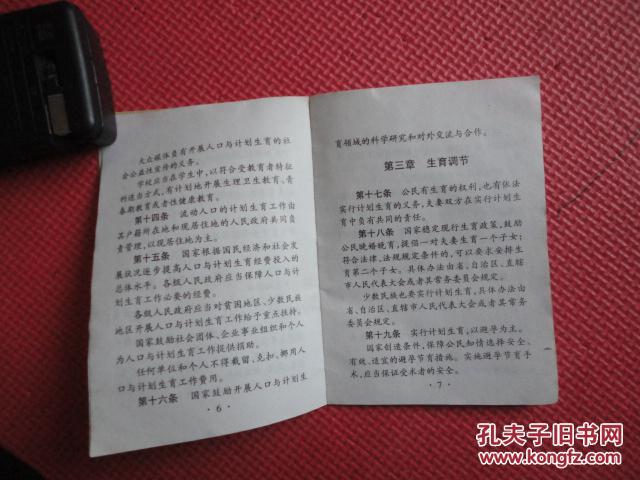 大众媒体负有开展人口与计划生育的社
会公益性宣传的义务。
学校应当在学生中，以符合受教育者特征
的适当方式，有计划地开展生理卫生教育、青
春期教育或者性健康教育。
第十四条 流动人口的计划生育工作由
其户籍所在地和现居住地的人民政府共同负
责管理，以现居住地为主。
第十五条 国家根据国民经济和社会发
展状况逐步提高人口与计划生育经费投入的
总体水平。各级人民政府应当保障人口与计
划生育工作必要的经费。
各级人民政府应当对贫困地区、少数民族
地区开展人口与计划生育工作给予重点扶持。
国家鼓励社会团体、企业事业组织和个人
为人口与计划生育工作提供捐助。
任何单位和个人不得截留、克扣、挪用人
口与计划生育工作费用。
第十六条 国家鼓励开展人口与计划生
·6·
育领域的科学研究和对外交流与合作。
第三章 生育调节
第十七条 公民有生育的权利，也有依法
实行计划生育的义务，夫妻双方在实行计划生
育中负有共同的责任。
第十八条 国家稳定现行生育政策，鼓励
公民晚婚晚育，提倡一对夫妻生育一个子女；
符合法律、法规规定条件的，可以要求安排生
育第二个子女。具体办法由省、自治区、直辖
市人民代表大会或者其常务委员会规定。
少数民族也要实行计划生育，具体办法由
省、自治区、直辖市人民代表大会或者其常务
委员会规定。
第十九条 实行计划生育，以避孕为主。
国家创造条件，保障公民知情选择安全、
有效、适宜的避孕节育措施。实施避孕节育手
术，应当保证受术者的安全。
·7·
孔夫子旧书网
www.kongfz.com